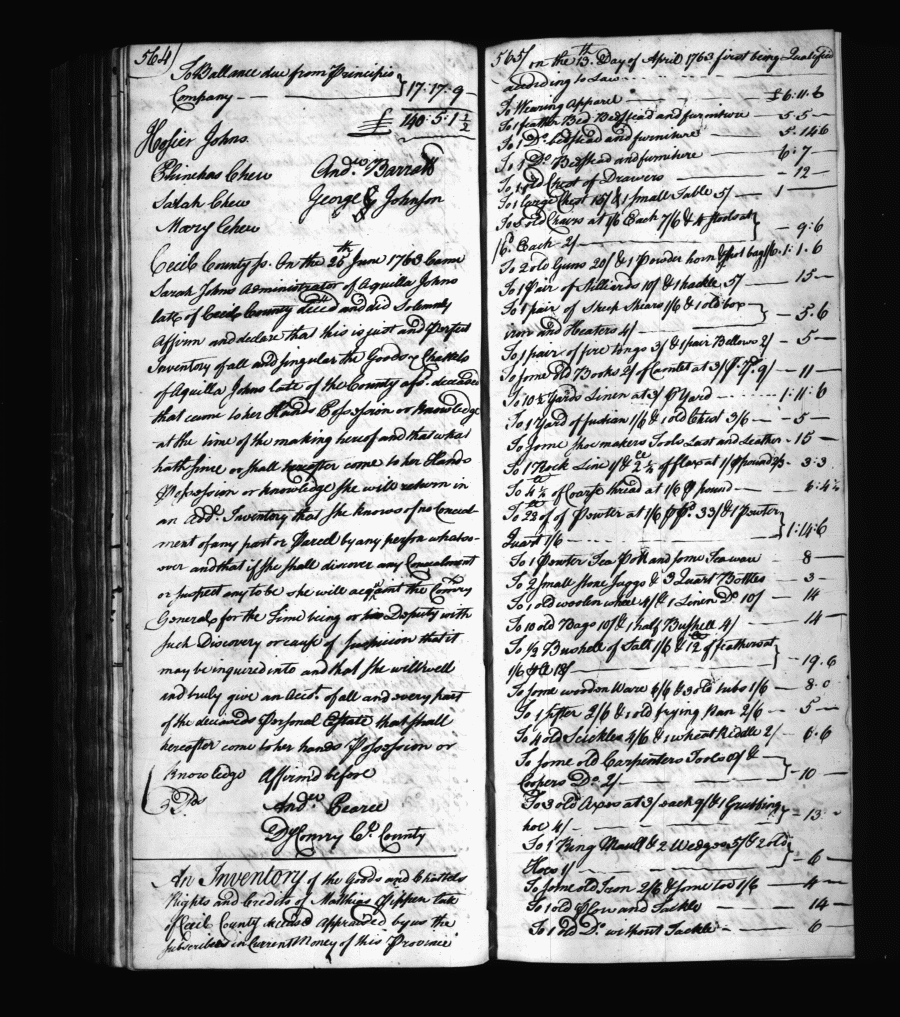 564
To Ballance due from Principio
Company — — — } 17.17.9
£ 140:5:1½
Hosier Johns
Phinehas Chew Andw Barratt
Sarah Chew George Johnson
Mary Chew
Cecil County ss. On the 25th June 1763 Came
Sarah Johns Administrator of Aquilla Johns
late of Cecil County decd and did Solemnly
Affirm and declare that this is just and Perfect
Inventory of all and singular the Goods & Chattels
of Aquilla Johns late of the County afd. deceased
that came to her Hands Possession or knowledge
at the time of the making hereof and that what
hath since or shall hereafter come to her Hands
Possession or knowledge she will return in
an Addl. Inventory that she knows of no Conceal
ment of any part or Parcel by any person whatso-
ever and that if she shall discover any Concealment
or suspect any to be she will acqt the Comry
General for the Time being or his Deputy with
such Discovery or cause of suspicion that it
may be inquired into and that she will well
and truly give an Acct. of all and every part
of the deceaseds Personal Estate that shall
hereafter come to her hands Possession or
knowledge Affirm'd before
Andw Pearce
Dy Comry Cl. County
An Inventory of the Goods and Chattels
Rights and Credits of Mathias late
of Cecil County deceased Appraised by us the
subscribers in Current Money of this Province
565 on the 13th Day of April 1763 first being Qualified
according to Law
To Wearing Apparel — £6:11:6
To 1 feather Bed Bedstead and furniture — 5.5—
To 1 Do. bedstead and furniture — 5.14 6
To 1 Do. Bedstead and furniture — 6:7—
To 1 old Chest of Drawers — 12—
To 1 large Chest 15/ & 1 Small Table 5/ — 1—
To 5 old Chairs at 1/6 Each 7/6 & 4 stools at
/6d. Each 2/ — } 9:6
To 2 old Guns 20/ & 1 Powder horn & shot bag 1/6 . 1:1.6
To 1 Pair of Stilliards 10/ & 1 hackle 5/ — 15—
To 1 pair of Sheep Shears 1/6 & 1 old box
iron and Heaters 4/ — } 5.6
To 1 pair of fire tongs 3/ & 1 pair Bellows 2/ — 5—
To some old Books 2/ of Camlet at 3/ 9/ — 11—
To 10½ Yards Linen at 3/ P Yard — 1:11:6
To 1 Yard of Indian 1/6 & 1 old Chest 3/6 — 5—
To some Shoemakers Tools Last and Leather — 15—
To 1 Flock Line 1/ & 2¼ lb of flax at 1/ P pound — 3:3
To 4¼ lb of Coarse thread at 1/6 P pound — 6:4½
To 22 lb of Pewter at 1/6 P P. 33/ & 1 Pewter
Quart 1/6 — } 1:14:6
To 1 Pewter Tea Pott and some Tea ware — 8—
To 2 Small stone Juggs & 3 Quart Bottles — 3—
To 1 old woolen wheel 4/ & 1 Linen Do. 10/ — 14
To 10 old Bags 10/ & 1 half Bushell 4/ — 14—
To ½ Bushell of Salt 1/6 & 12 lb of feathers at
1/6 P lb 18/ — } 19.6
To some wooden Ware 6/6 & 3 old tubs 1/6 — 8:0
To 1 sifter 2/6 & 1 old frying Pan 2/6 — 5—
To 4 old Seickles 4/6 & 1 wheat Riddle 2/ — 6:6
To some old Carpenters Tools 8/ &
Coopers Do. 2/ — } 10—
To 3 old Axes at 3/ each 9/ & 1 Grubbing
hoe 4/ — } 13—
To 1 Ring Maull & 2 Wedges 5/ & 2 old
Hoes 1/ — } 6—
To some old Iron 2/6 & some 1/6 — 4—
To 1 old Plow and Tackle — 14—
To 1 old Do. without Tackle — 6